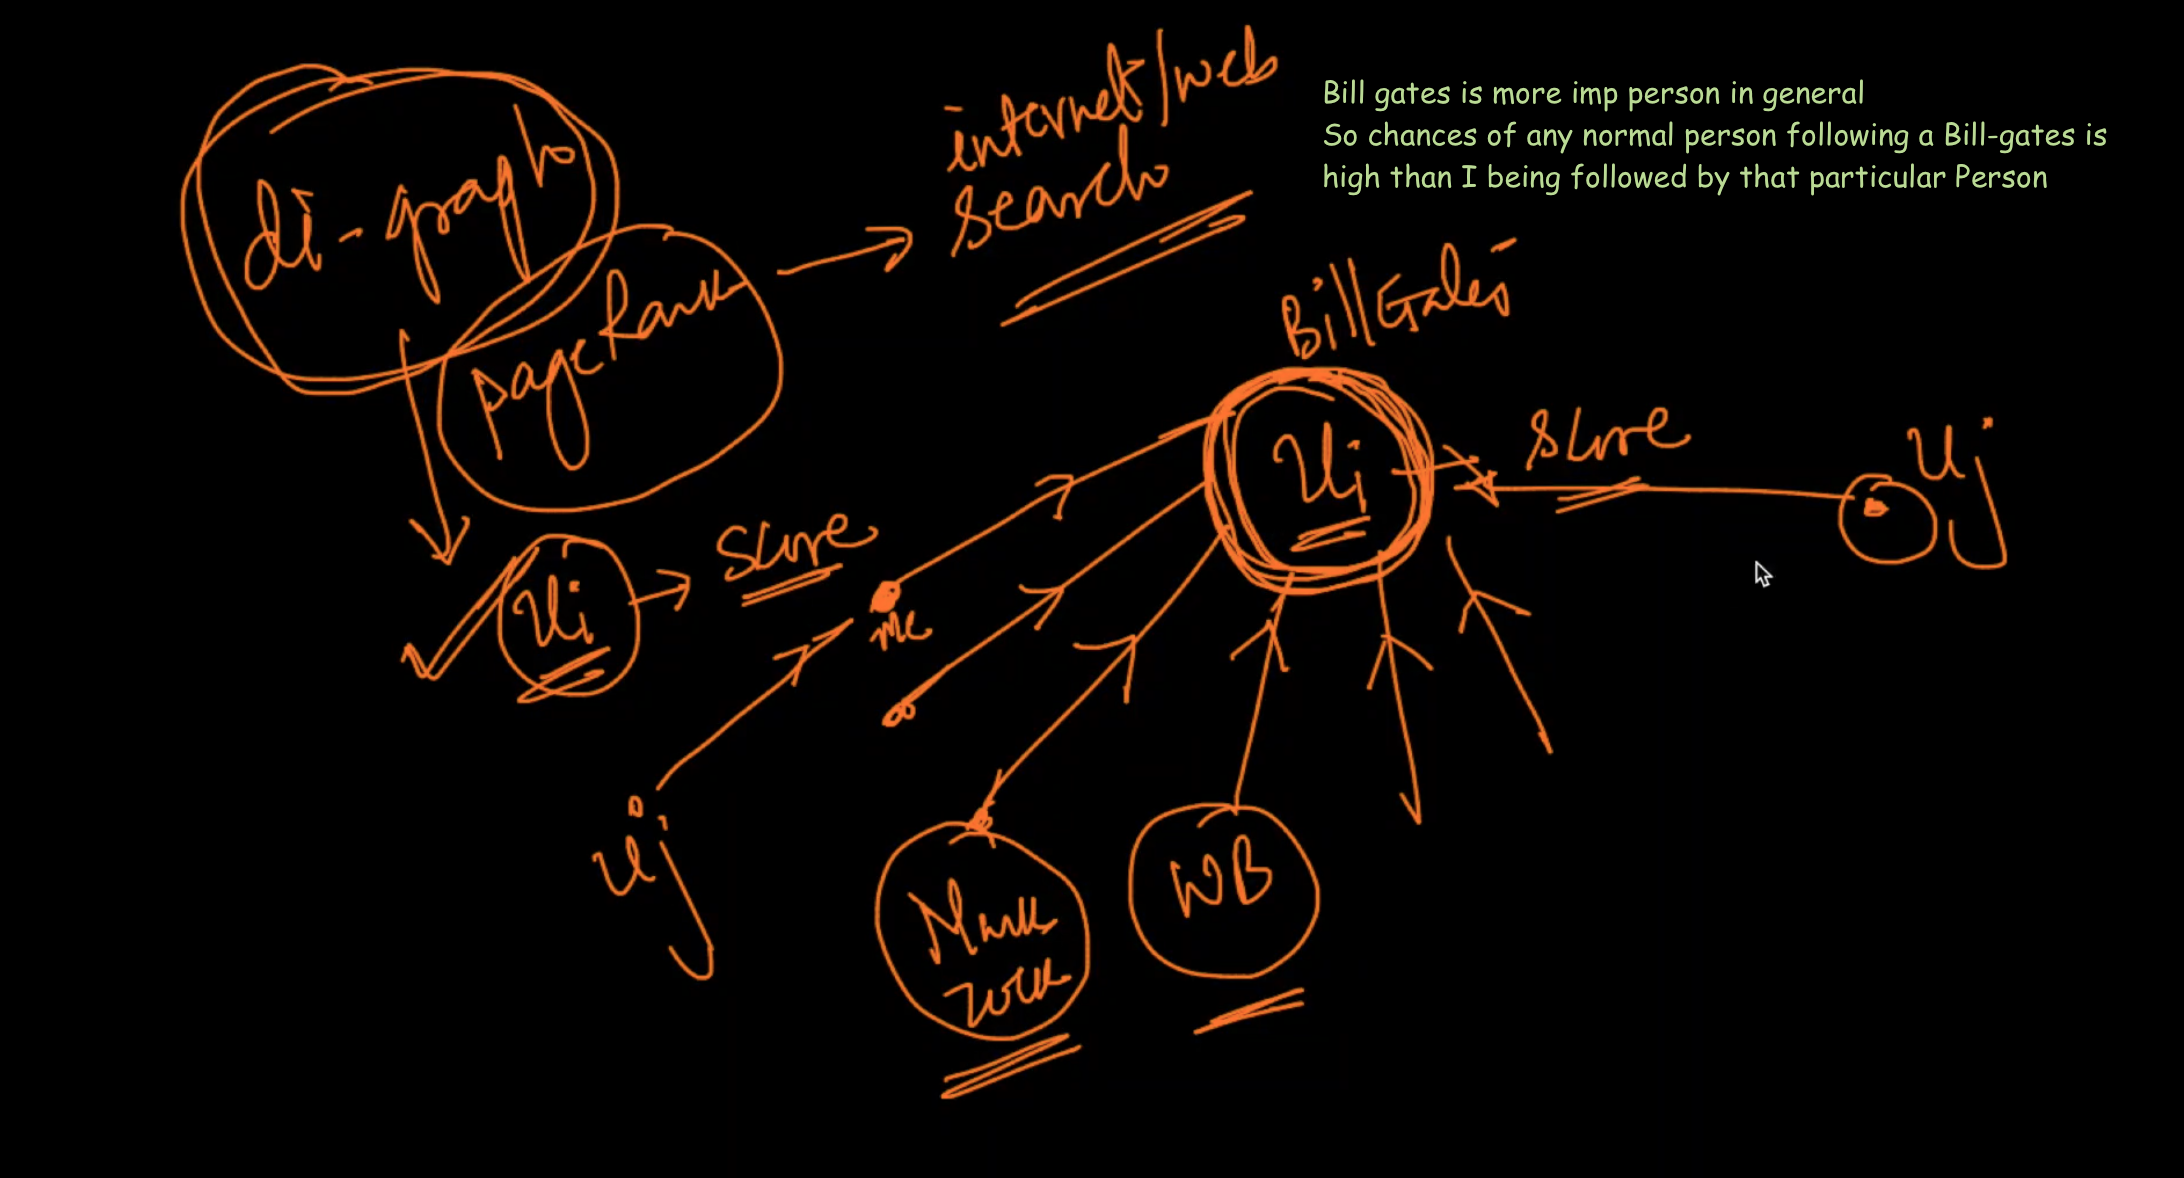 di-graph
pageRank
internet/web
search
Bill gates is more imp person in general
So chances of any normal person following a Bill-gates is
high than I being followed by that particular Person
Bill Gates
Ui
score
Uj
Ui
score
me
Uj
Mark
zuck
WB